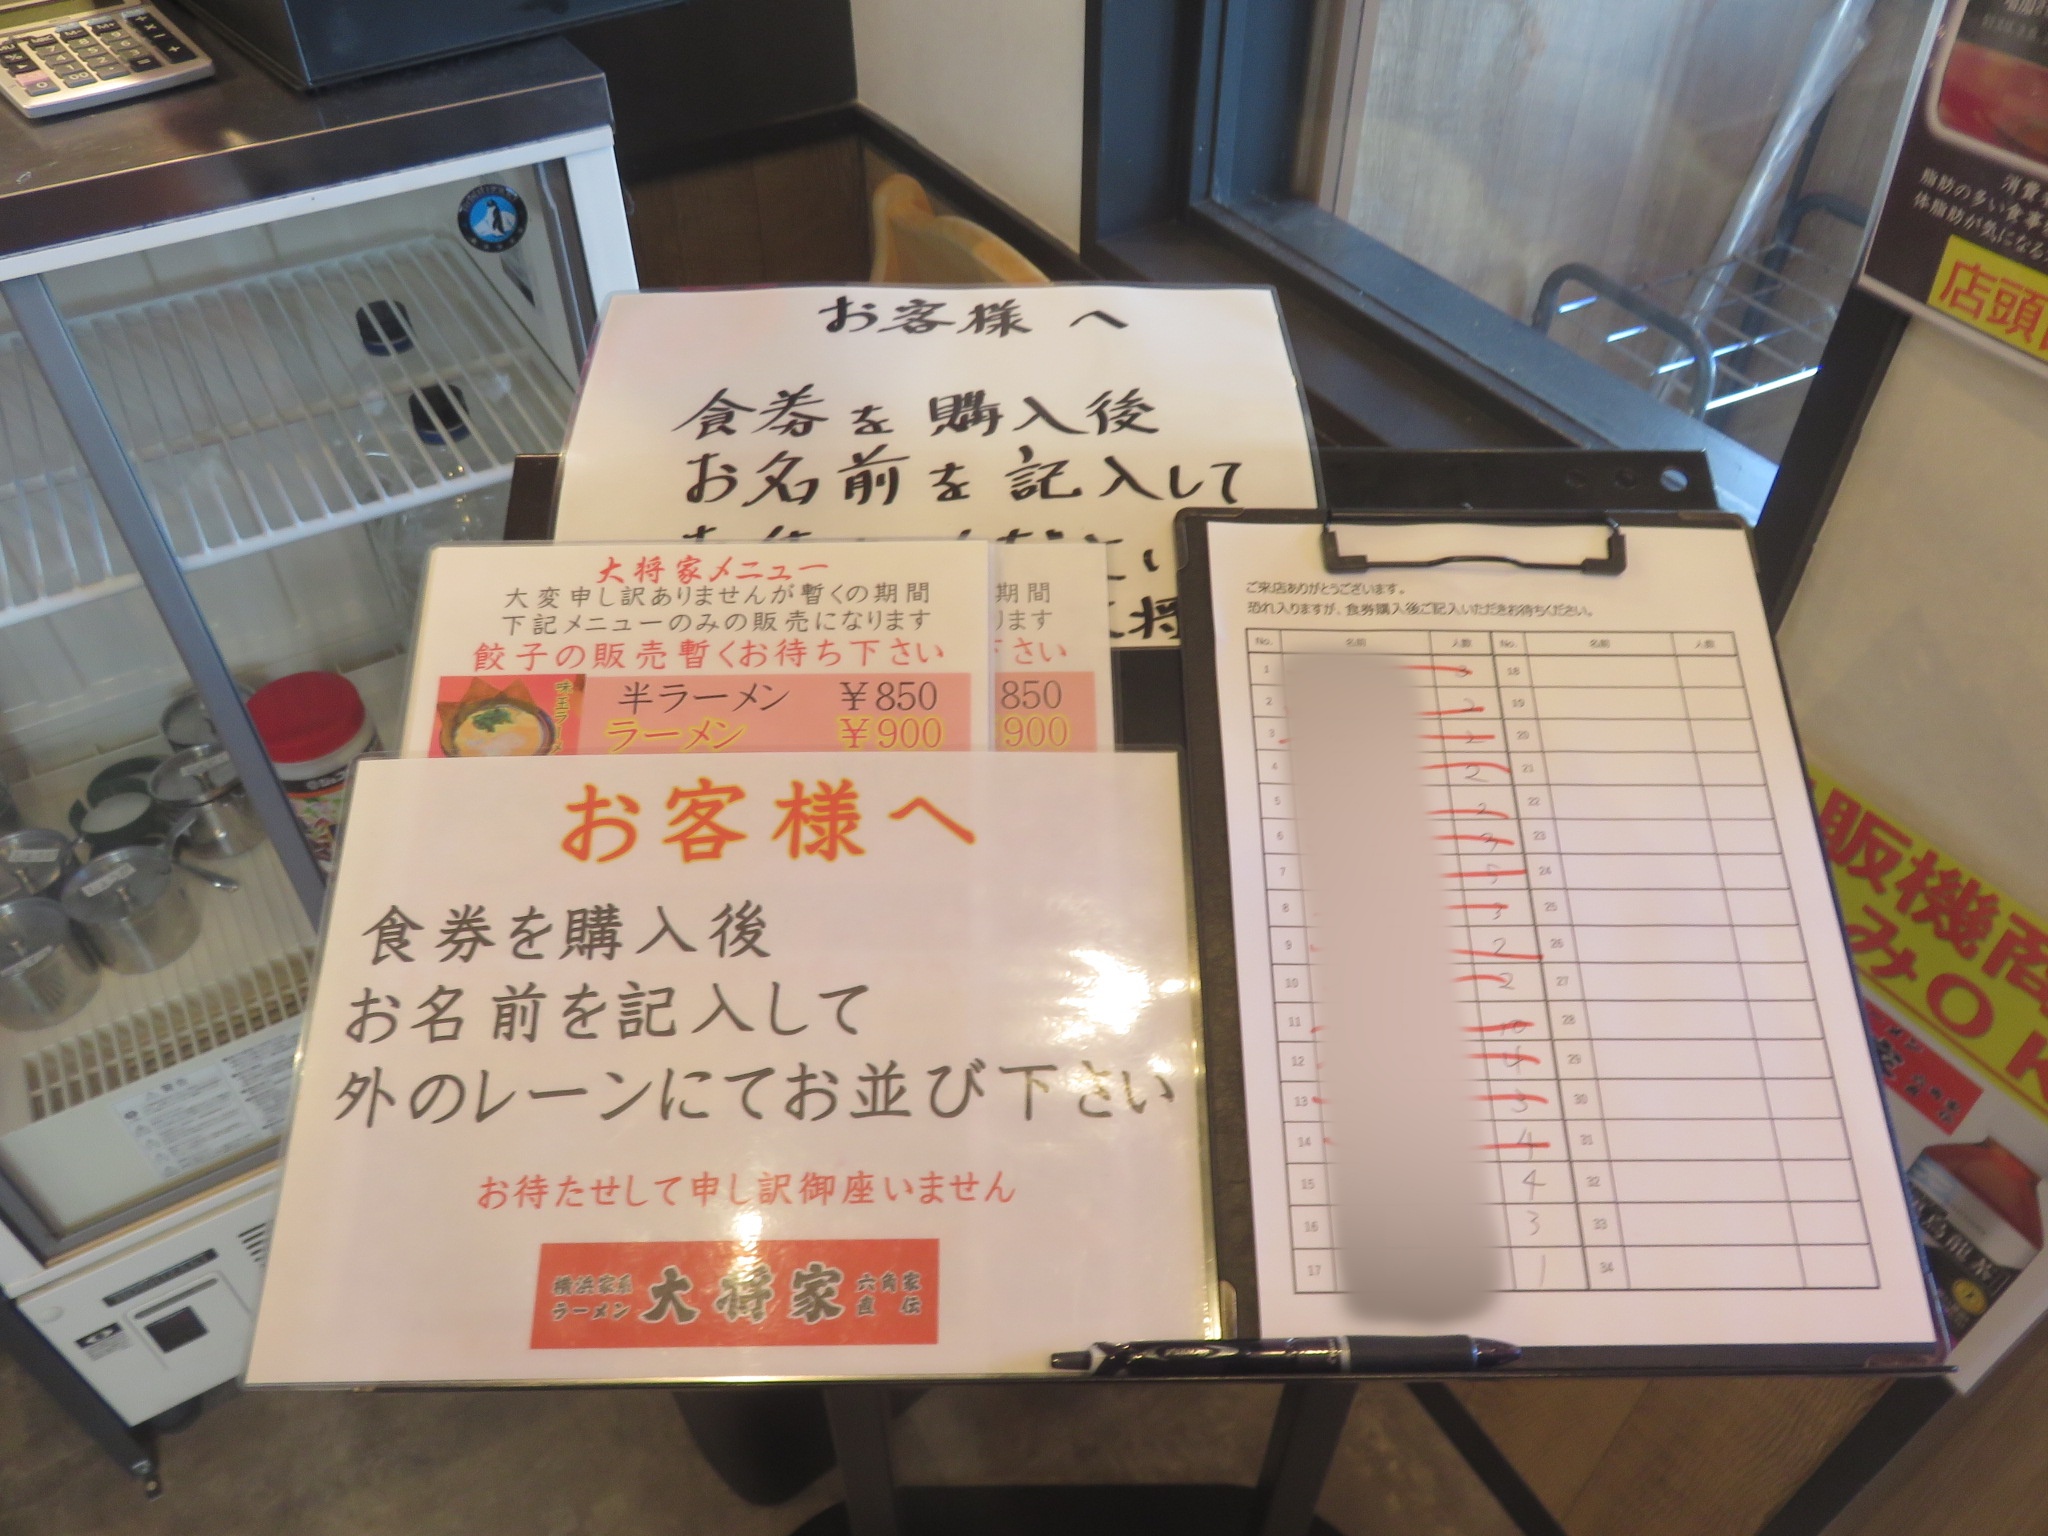 お客様へ
食券を購入後
お名前を記入して
大将家メニュー
大変申し訳ありませんが暫くの期間
下記メニューのみの販売になります
餃子の販売暫くお待ち下さい
半ラーメン ￥850
ラーメン ￥900
期間
ります
下さい
850
900
お客様へ
食券を購入後
お名前を記入して
外のレーンにてお並び下さい
お待たせして申し訳御座いません
横浜家系
ラーメン
大将家
六角家
直伝
ご来店ありがとうございます。
恐れ入りますが、食券購入後ご記入いただきお待ちください。
No. 名前 人数 No. 名前 人数
1 3 18
2 2 19
3 2 20
4 2 21
5 2 22
6 3 23
7 5 24
8 3 25
9 2 26
10 2 27
11 10 28
12 4 29
13 3 30
14 4 31
15 4 32
16 3 33
17 1 34
脂肪の多い食事
体脂肪が気になる
店頭
販機商
みOK